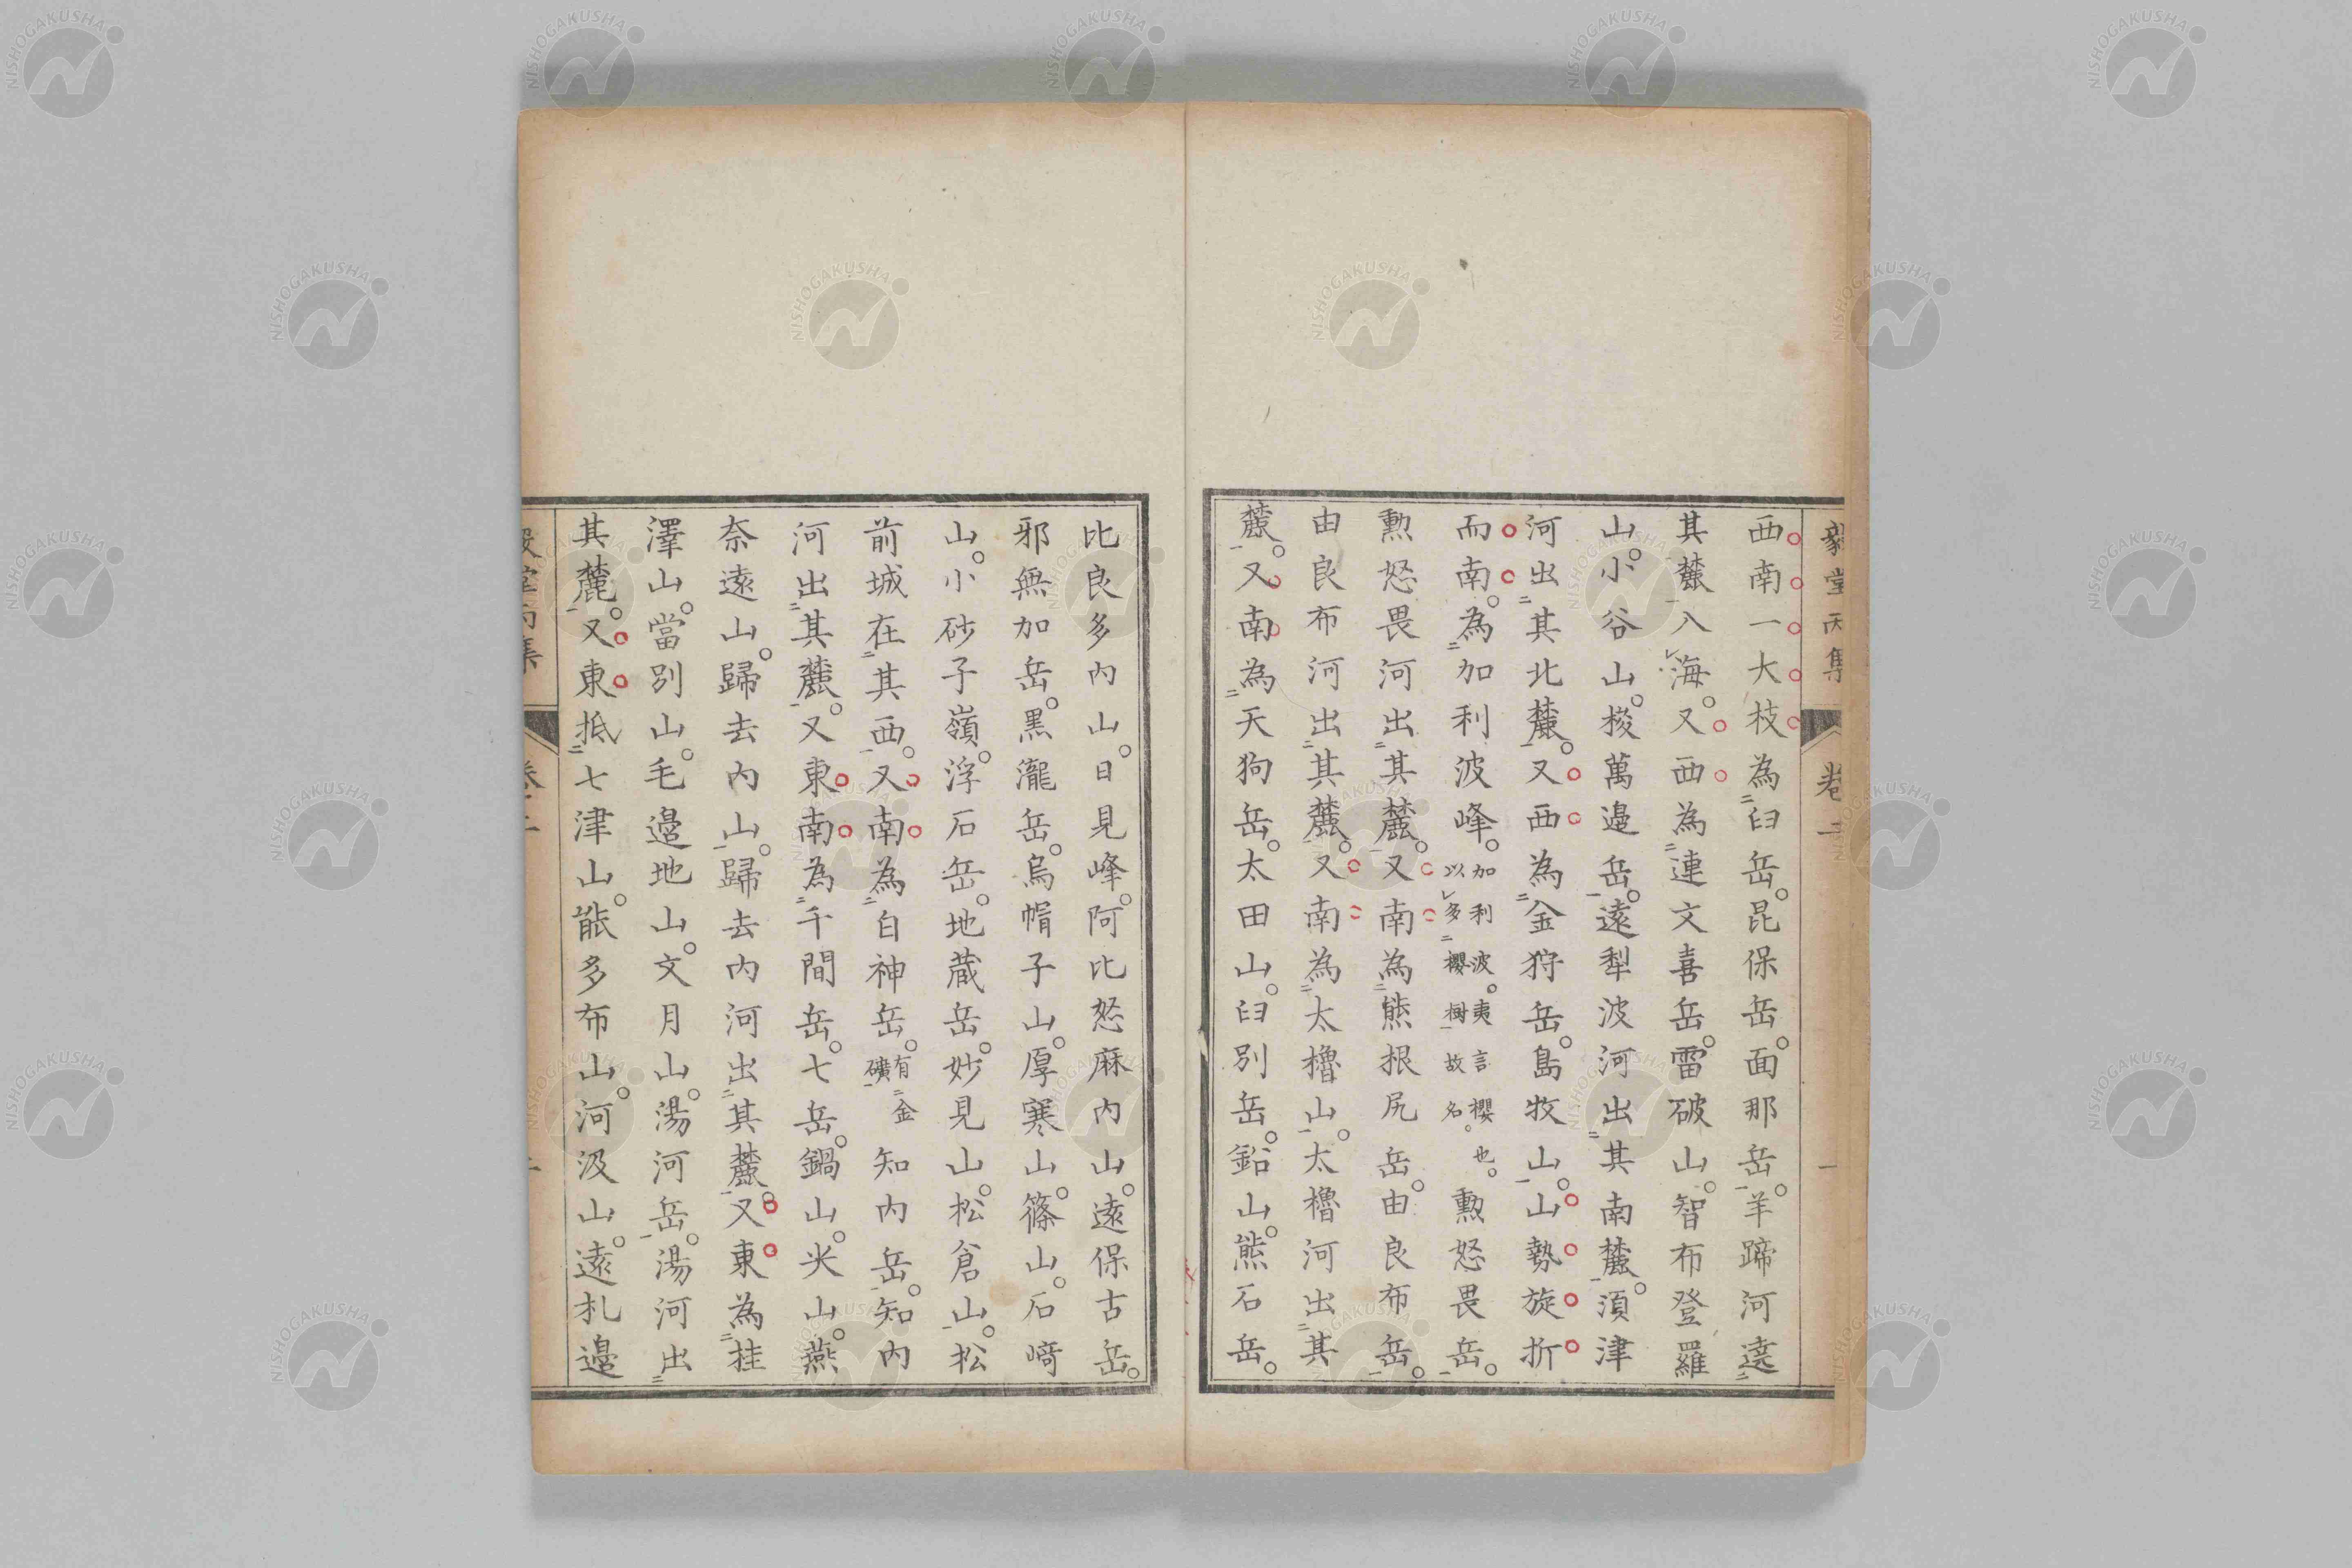 毅堂丙集
卷二
西南一大枝為臼岳。昆保岳。面那岳。羊蹄河遶
其麓入海。又西為連文喜岳。雷破山。智布登羅
山。小谷山。椴萬邉岳。遠犁波河出其南麓。湏津
河出其北麓。又西為金狩岳。島牧山。山勢旋折
而南。為加利波峰。加利波。夷言櫻也。以多櫻樹故名。勲怒畏岳。
勲怒畏河出其麓。又南為熊根尻岳。由良布岳。
由良布河出其麓。又南為太櫓山。太櫓河出其
麓。又南為天狗岳。太田山。臼別岳。鉛山。熊石岳。
比良多内山。日見峰。阿比怒麻内山。遠保古岳。
邪無加岳。黒瀧岳。烏帽子山。厚寒山。篠山。石﨑
山。小砂子嶺。浮石岳。地蔵岳。妙見山。松倉山。松
前城在其西。又南為白神岳。有金礦知内岳。知内
河出其麓。又東南為千間岳。七岳。鍋山。尖山。燕
奈遠山。歸去内山。歸去内河出其麓。又東為桂
澤山。當別山。毛邉地山。文月山。湯河岳。湯河出
其麓。又東抵七津山。能多布山。河汲山。遠札邉
毅堂丙集